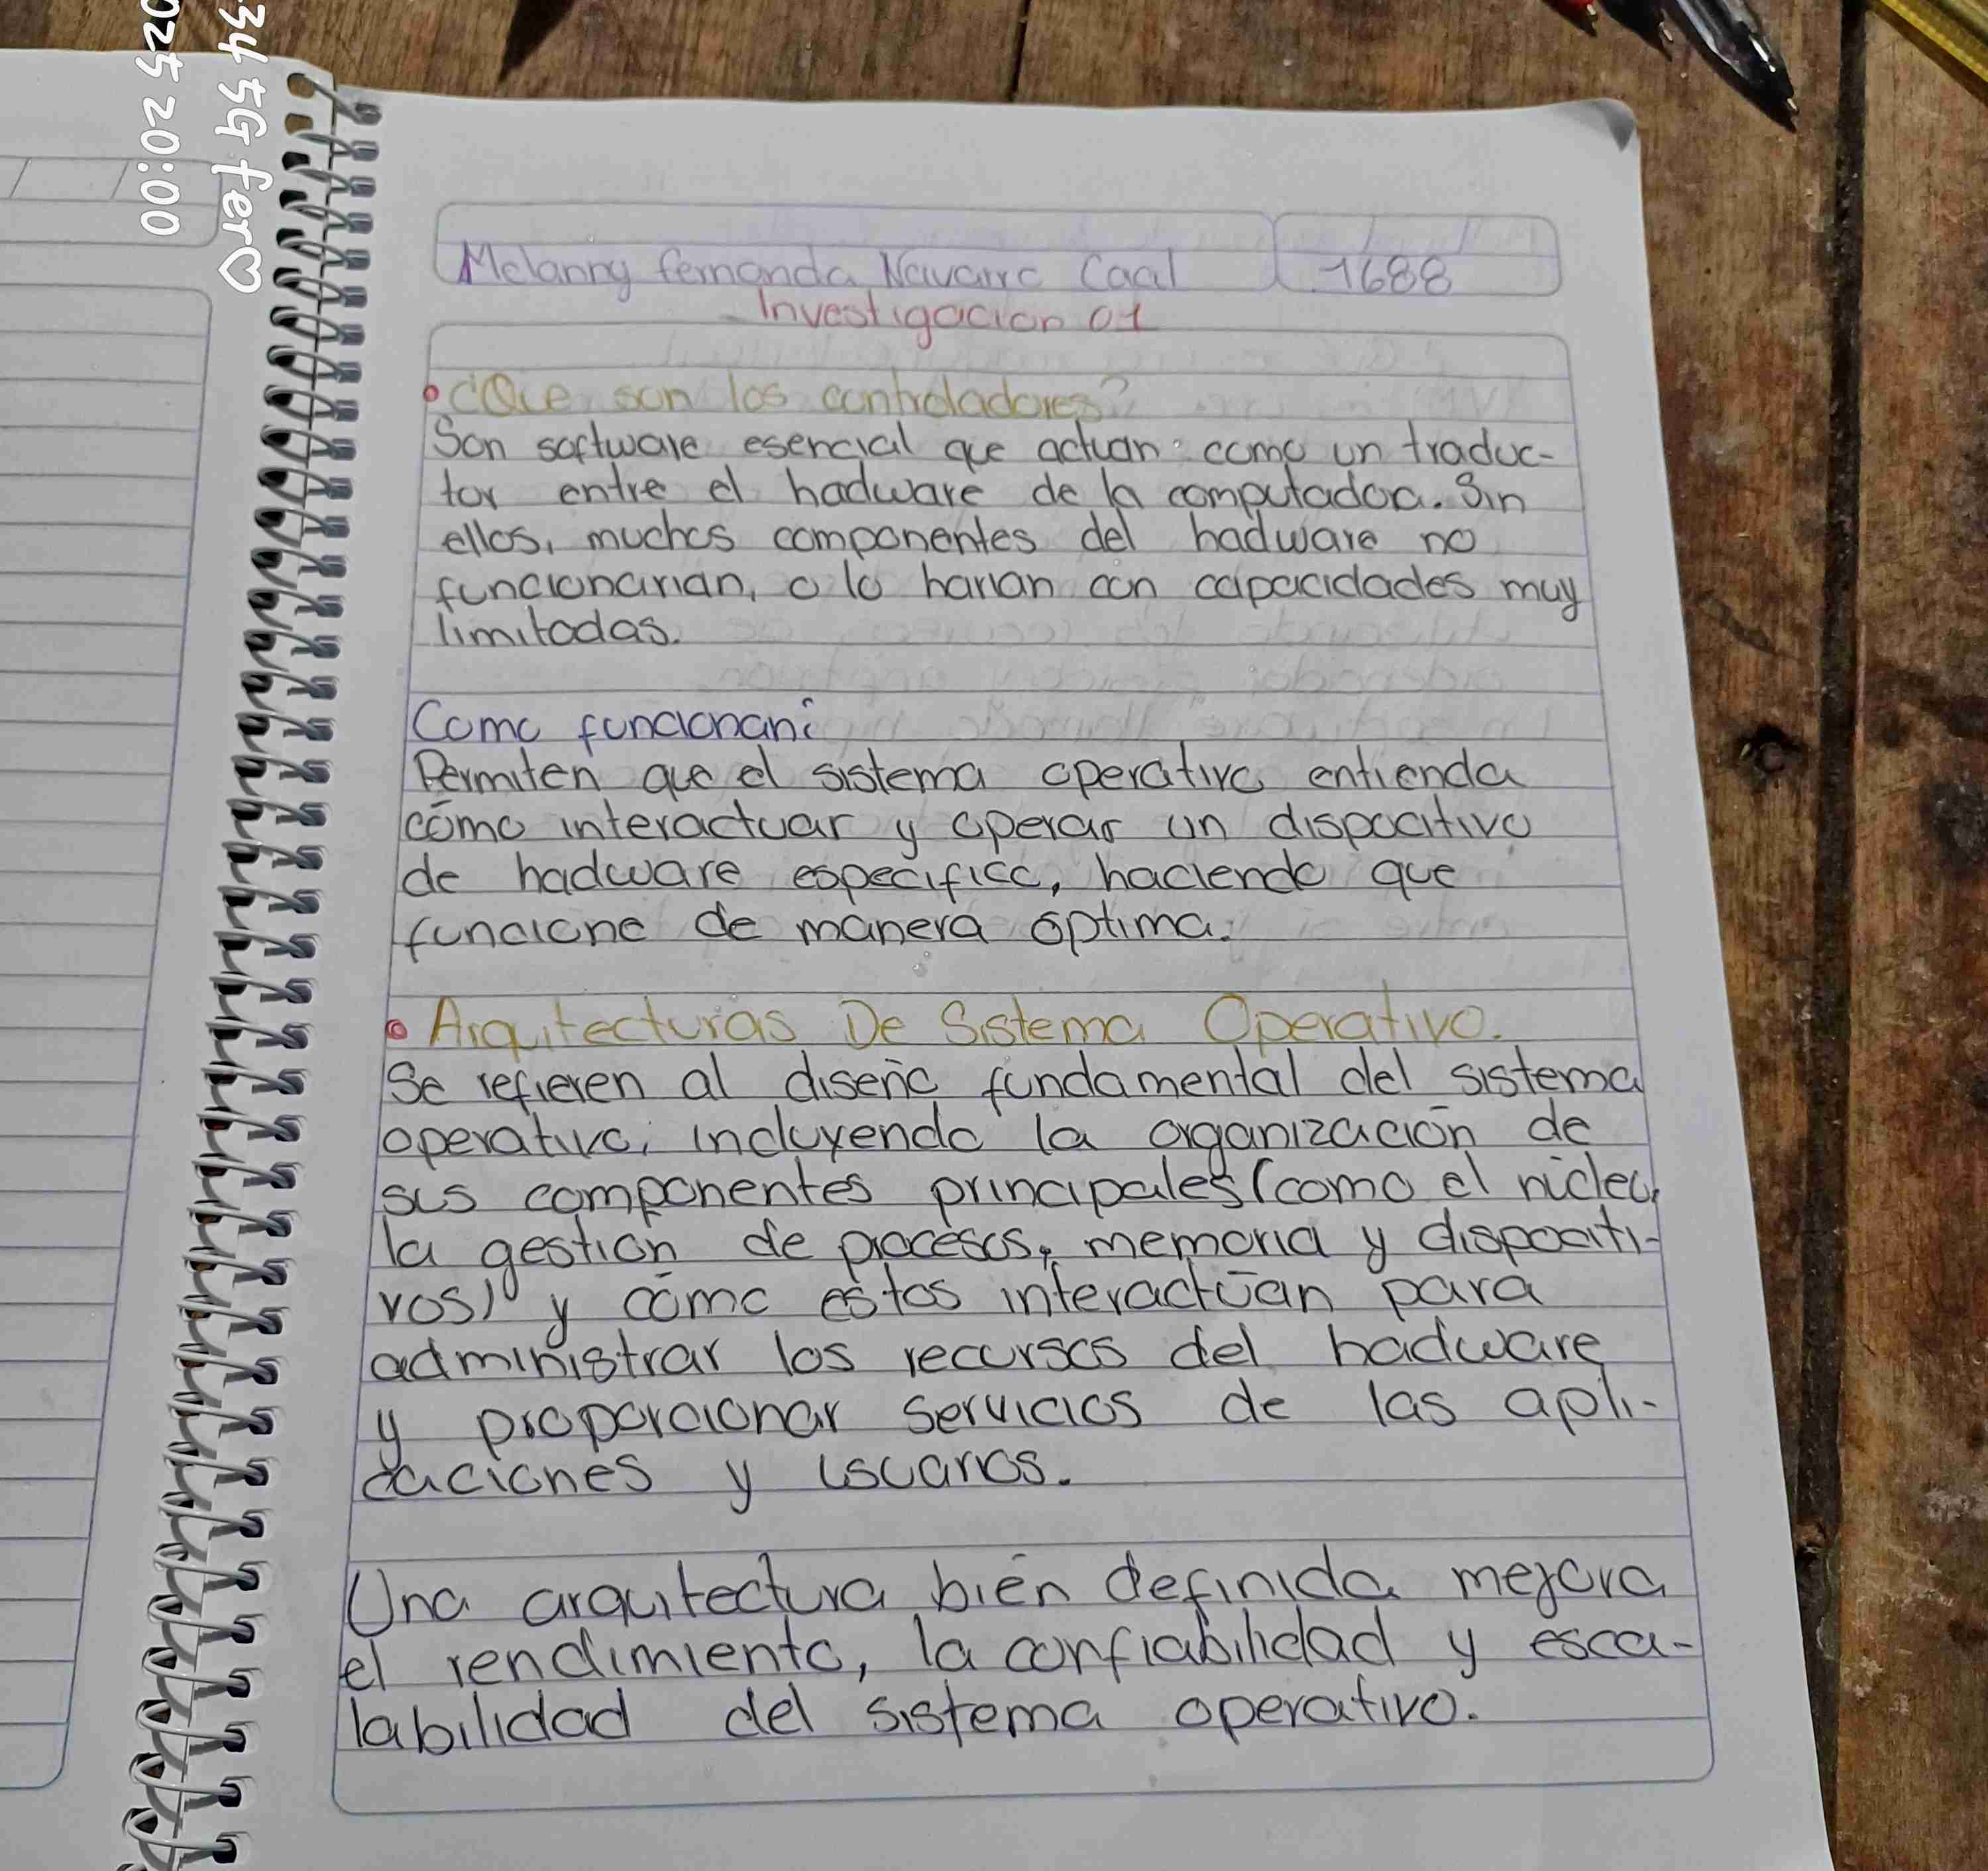 34 5G fer♡
025 20:00
Melanny fernanda Navarro Caal 1688
Investigacion 01
• ¿Que son los controladores?
Son software esencial que actuan como un traduc-
tor entre el hadware de la computadora. Sin
ellos, muchos componentes del hadware no
funcionarian, o lo harian con capacidades muy
limitadas.
Como funcionan:
Permiten que el sistema operativo entienda
cómo interactuar y operar un dispocitivo
de hadware especifico, haciendo que
funcione de manera óptima.
• Arquitecturas De Sistema Operativo.
Se refieren al diseño fundamental del sistema
operativo, incluyendo la organización de
sus componentes principales (como el núcleo,
la gestion de procesos, memoria y dispociti-
vos) y cómo estos interactúan para
administrar los recursos del hadware
y proporcionar servicios de las apli-
caciones y usuarios.
Una arquitectura bien definida mejora
el rendimiento, la confiabilidad y esca-
labilidad del sistema operativo.